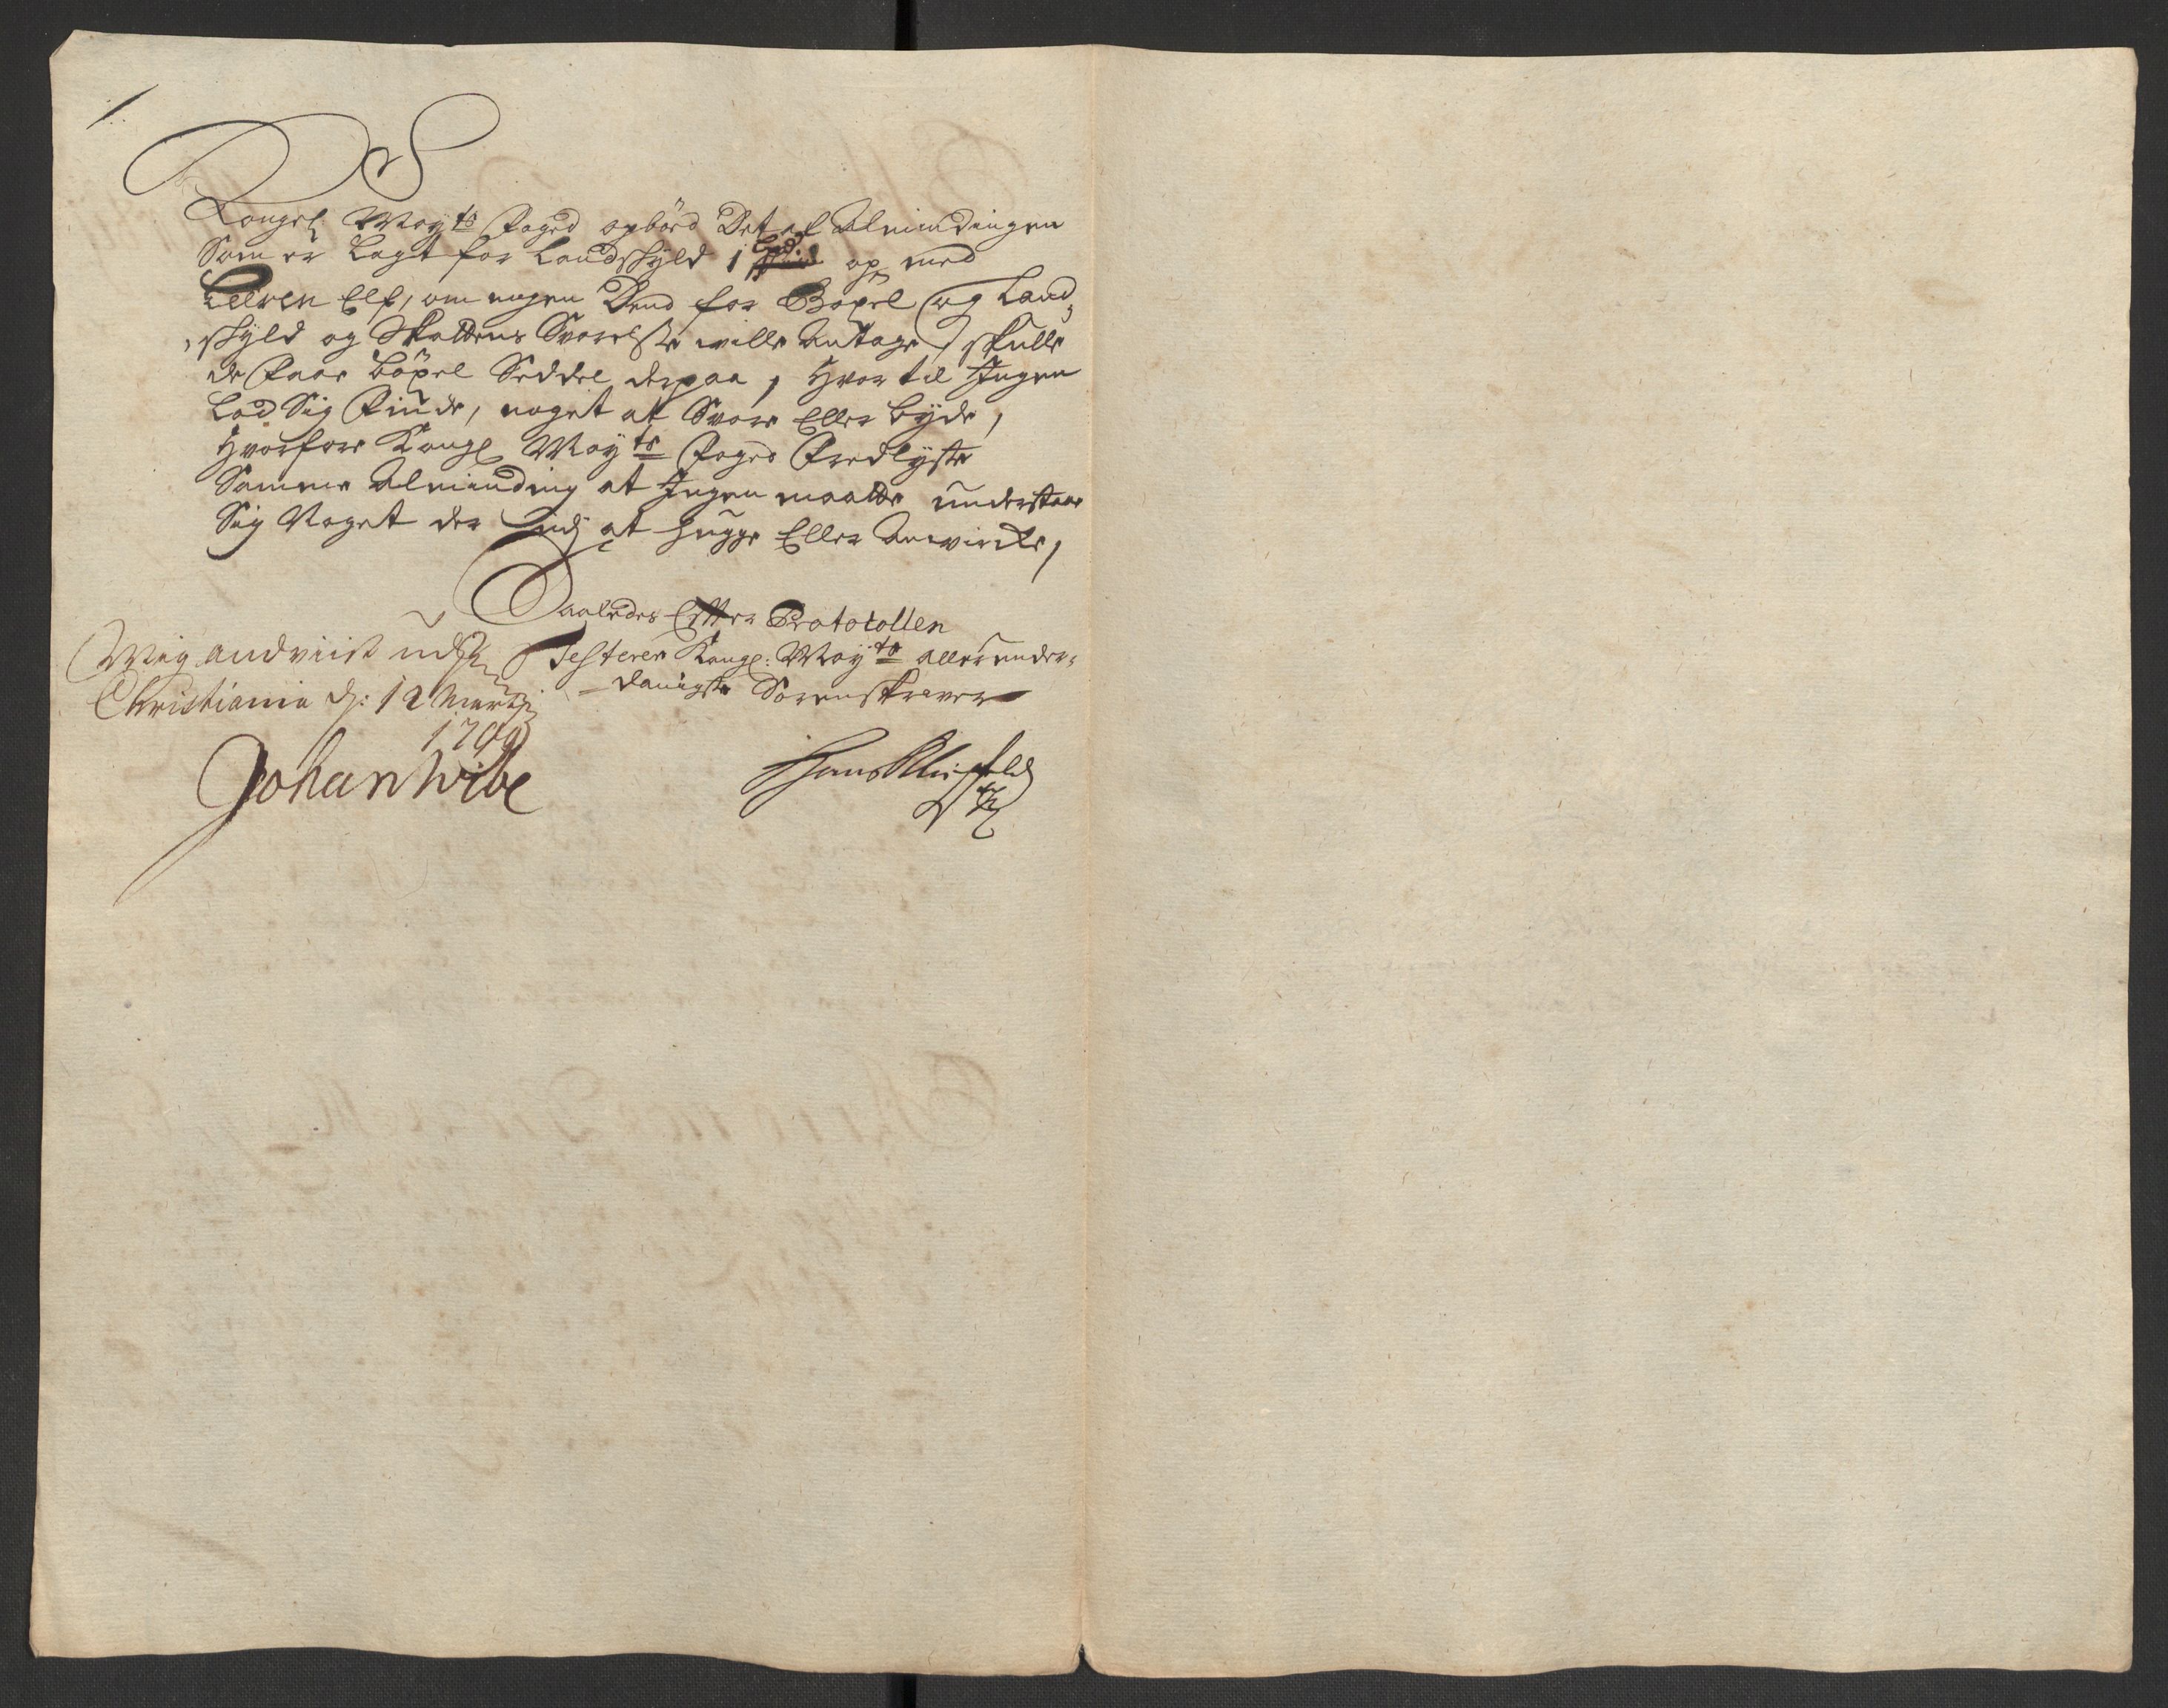 Kongel Mayts Foged opbød Det af Almindingen
Som er Lagt for Landskyld 1 op med
Elf, om nogen Dend for Bøxel og Land
skyld og Skattens Svarelse wille Antage, skulle
de Faae böxel Seddel derpaa, Hvor til Ingen
Lod Sig Finde, noget at Svare Eller byde,
Hvorfore Kongl Mayts Foged Fredlyste
Samme Alminding at Ingen maatte understaae
Sig Noget der udj at hugge Eller Anvircke,
Saaledes Efter Protocollen
Testerer Kongl: Mayts allerunder-
danigste Sorenskriver
Mig andviist udj
Christiania d: 12 Martij
1709
Johan Wibe
Hans